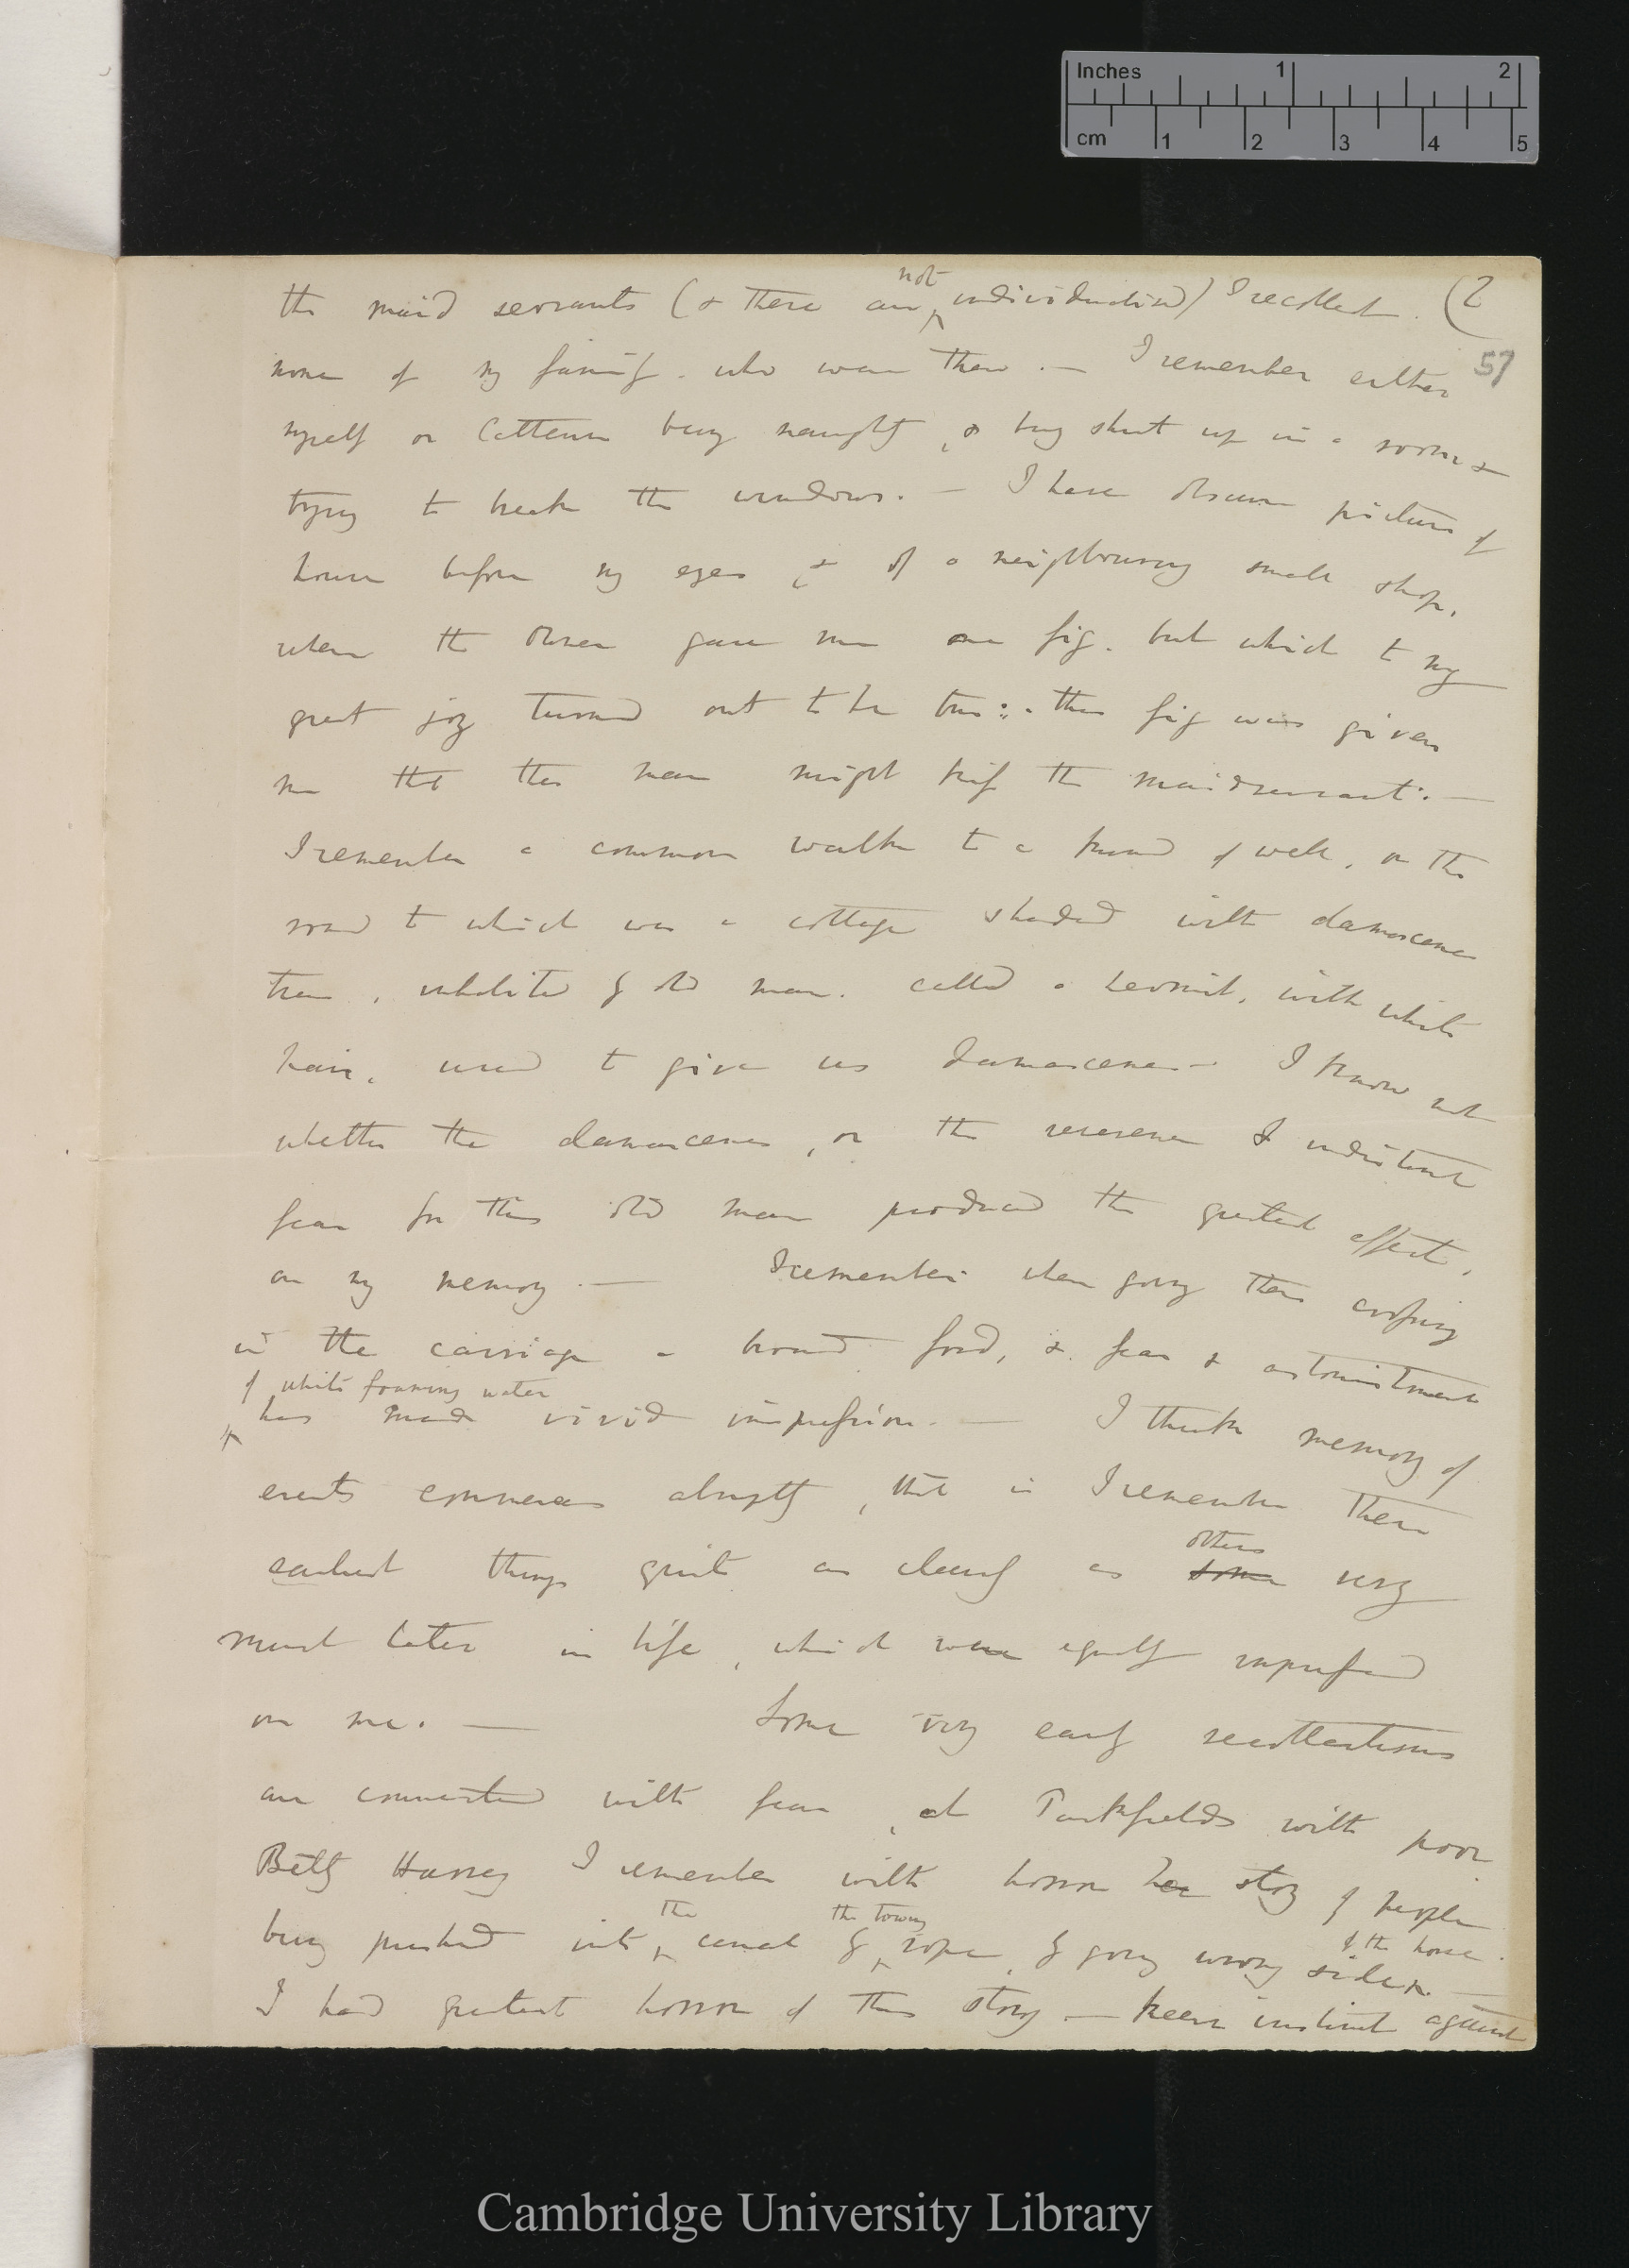 Inches 1 2
cm 1 2 3 4 5
the maid servants (& these are not individualised) I recollect. (2
none of my family who were there. — I remember either 57
myself or Catherine being naughty, & being shut up in a room &
trying to break the windows. — I have obscure picture of
house before my eyes, & of a neighbouring small shop,
where the owner gave me one fig. but which to my
great joy turned out to be two: this fig was given
me that the man might kiss the maidservant: —
I remember a common walk to a kind of well, on the
road to which was a cottage shaded with damascene
trees, inhabited by old man. called a hermit, with white
hair, used to give us damascenes — I know not
whether the damascenes, or the reverence & indistinct
fear for this old man produced the greatest effect,
on my memory. — I remember when going there crossing
in the carriage a broad ford, & fear & astonishment
of white foaming water
has made vivid impression. — I think memory of
events commences abruptly, that is I remember these
earliest things quite as clearly as others some very
much later in life, which were equally impressed
on me. — Some very early recollections
are connected with fear, at Parkfields with poor
Betty Harvey I remember with horror her story of people
being pushed into the canal by the towing rope, by going wrong side of the horse. —
I had greatest horror of this story — keen instinct against
Cambridge University Library